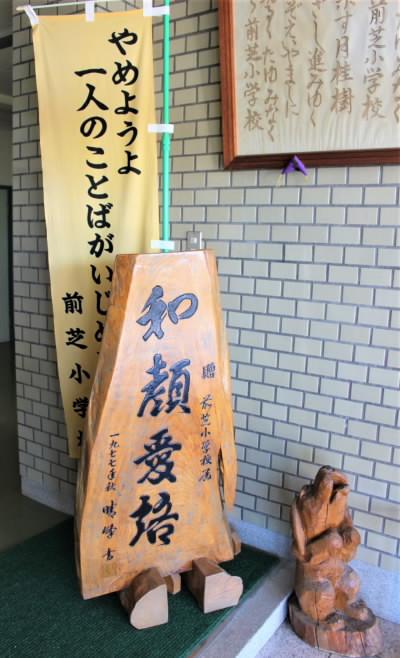 やめようよ
一人のことばがいじめ
前芝小学
和顔愛語
贈 前芝小学校
一九七七年秋
書
みなく
前芝小学校
す月桂樹
し進みゆく
えやまに
たゆみなく
前芝小学校